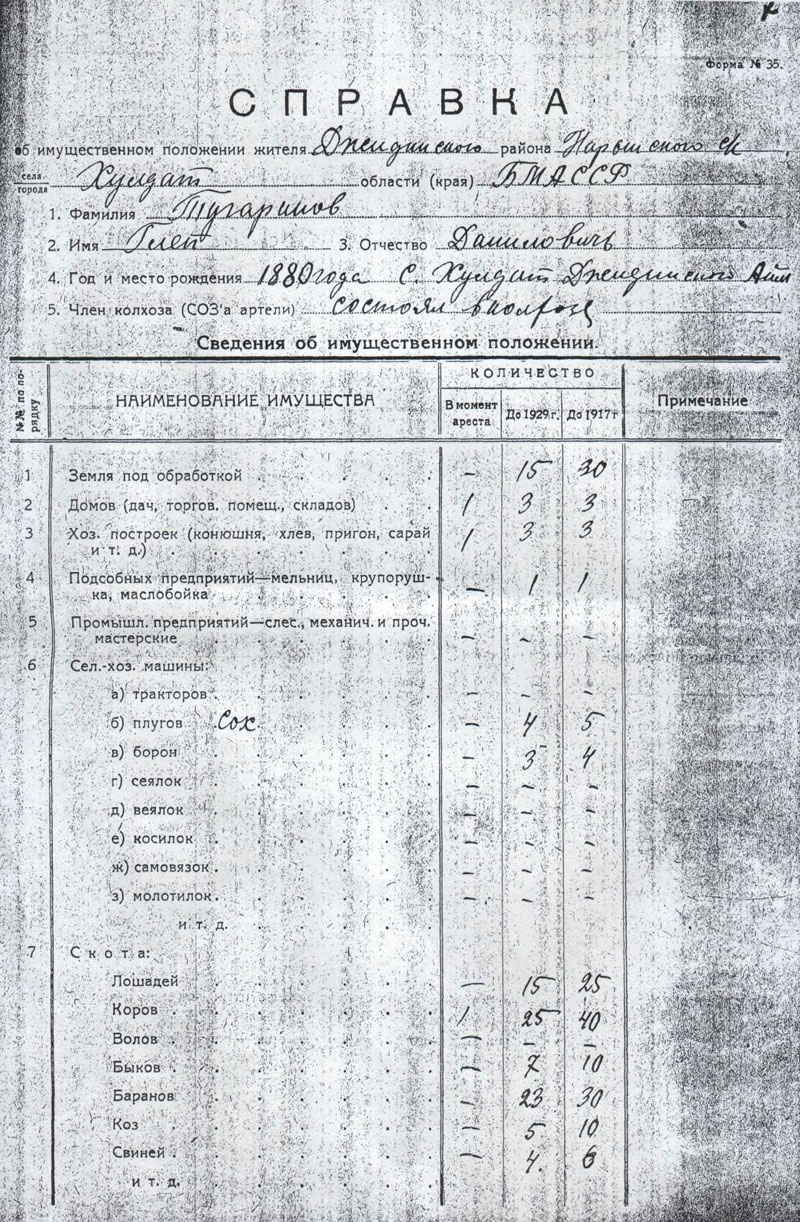 Форма № 35.
СПРАВКА
об имущественном положении жителя Джидинского района Нарынского с/с
села города Хулдат области (края) БМАССР
1. Фамилия Тугаринов
2. Имя Глеп 3. Отчество Даниловичь
4. Год и место рождения 1880 года с. Хулдат Джидинского Айм
5. Член колхоза (СОЗ'а артели) состоял в колхозе
Сведения об имущественном положении.
№№ по порядку НАИМЕНОВАНИЕ ИМУЩЕСТВА КОЛИЧЕСТВО Примечание
В момент ареста До 1929 г. До 1917 г
1 Земля под обработкой — 15 30
2 Домов (дач, торгов. помещ., складов) 1 3 3
3 Хоз. построек (конюшня, хлев, пригон, сарай
и т. д.) 1 3 3
4 Подсобных предприятий—мельниц, крупоруш-
ка, маслобойка — 1 1
5 Промышл. предприятий—слес., механич. и проч.
мастерские — — —
6 Сел.-хоз. машины:
а) тракторов — — —
б) плугов Сох — 4 5
в) борон — 3 4
г) сеялок — — —
д) веялок — — —
е) косилок — — —
ж) самовязок — — —
з) молотилок — — —
и т. д.
7 Скота:
Лошадей — 15 25
Коров 1 25 40
Волов — — —
Быков — 7 10
Баранов — 23 30
Коз — 5 10
Свиней — 4. 6
и т. д.